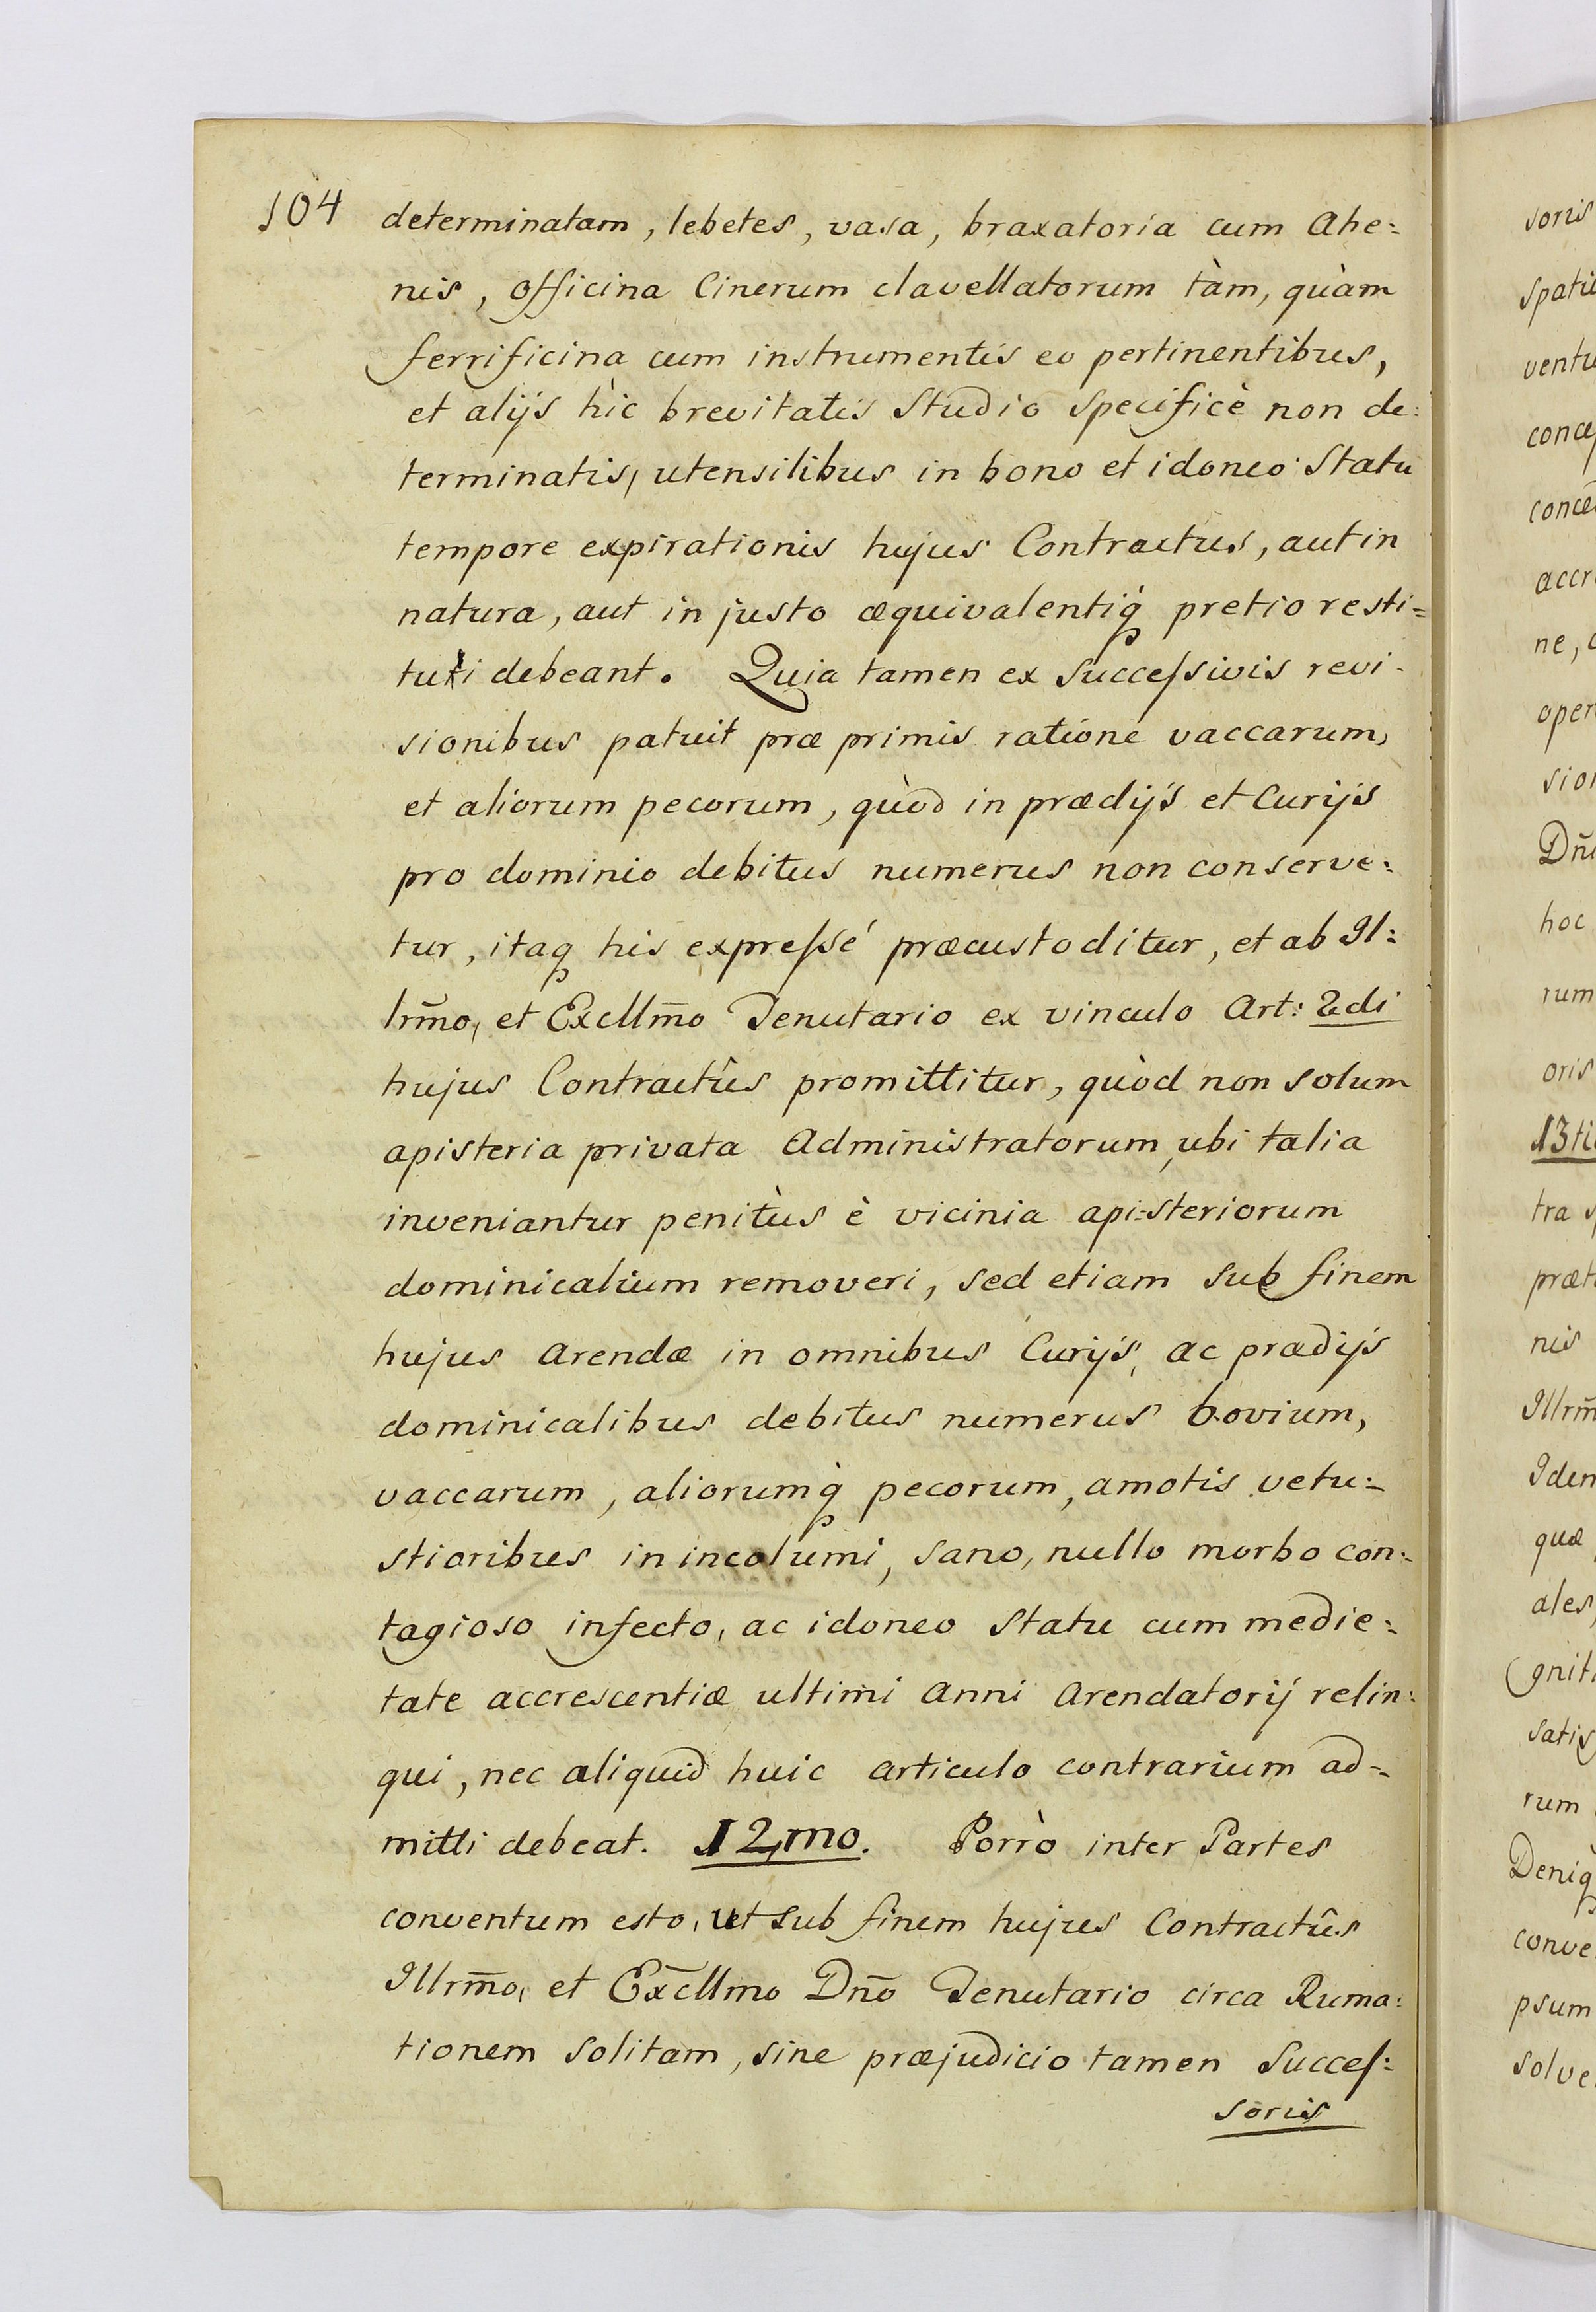 104
determinatam, lebetes, vasa, braxatoria cum Ahe=
nis, officina Cinerum clavellatorum tàm, quàm
ferrificina cum instrumentis eo pertinentibus,
et alijs hìc brevitatis Studio Specificè non de=
terminatis, utensilibus in bono et idoneo Statu
tempore expirationis hujus Contractus, aut in
natura, aut in justo æquivalentiq́ pretio resti=
tuti debeant. Quia tamen ex Succeſsivis revi-
sionibus patuit præ primis ratione vaccarum,
et aliorum pecorum, quòd in prædijs et Curijs
pro dominio debitus numerus non conserve=
tur, itaq his expreſsé præcustoditur, et ab Il=
lrm̃o, et Excllm̃o Tenutario ex vinculo Art: 2di
hujus Contractûs promittitur, quòd non solum
apisteria privata Administratorum, ubi talia
inveniantur penitùs è vicinia api=steriorum
dominicalium removeri, sed etiam sub finem
hujus Arendæ in omnibus Curijs, ac prædijs
dominicalibus debitus numerus bovium,
vaccarum, aliorumq́ pecorum, amotis vetu=
stioribus in incolumi, sano, nullo morbo con=
tagioso infecto, ac idoneo Statu cum medie=
tate accrescentiæ ultimi Anni Arendatorij relin=
qui, nec aliquid huic articulo contrarium ad=
mitti debeat. 12mo. Porrò inter Partes
conventum esto, ut sub finem hujus Contractûs
Illrm̃o, et Ex̃cllmo Dño Tenutario circa Ruma=
tionem solitam, sine præjudicio tamen Succeſ=
soris
soris
spatiu
ventu
conce
ne,
oper
sion
Dñ
hoc
rum
oris
13ti
tra
præt
nis
Illrm̃
Idem
quæ
ales,
gniti
satis
rum
Deniq
conve
psum
solve